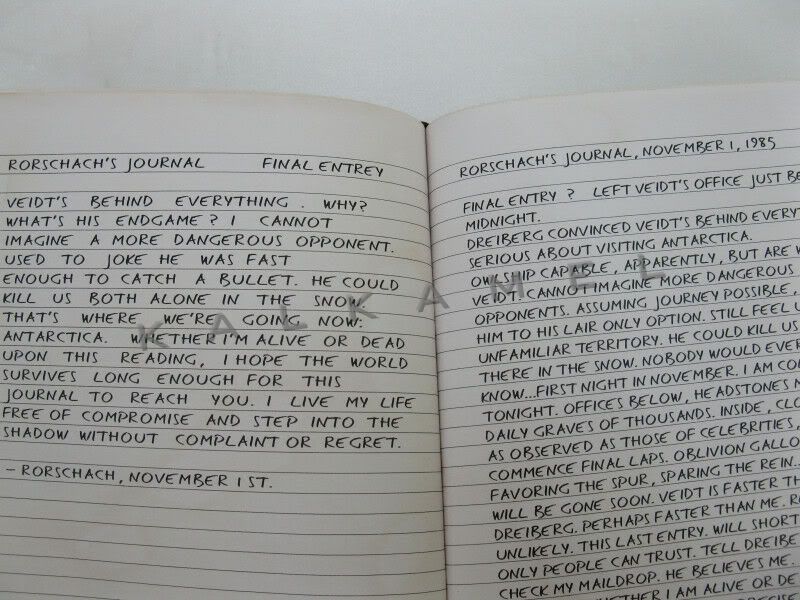 RORSCHACH'S JOURNAL FINAL ENTREY
VEIDT'S BEHIND EVERYTHING . WHY?
WHAT'S HIS ENDGAME? I CANNOT
IMAGINE A MORE DANGEROUS OPPONENT.
USED TO JOKE HE WAS FAST
ENOUGH TO CATCH A BULLET. HE COULD
KILL US BOTH ALONE IN THE SNOW.
THAT'S WHERE WE'RE GOING NOW:
ANTARCTICA. WHETHER I'M ALIVE OR DEAD
UPON THIS READING, I HOPE THE WORLD
SURVIVES LONG ENOUGH FOR THIS
JOURNAL TO REACH YOU. I LIVE MY LIFE
FREE OF COMPROMISE AND STEP INTO THE
SHADOW WITHOUT COMPLAINT OR REGRET.
– RORSCHACH, NOVEMBER 1 ST.
RORSCHACH'S JOURNAL, NOVEMBER 1, 1985
FINAL ENTRY ? LEFT VEIDT'S OFFICE JUST BE
MIDNIGHT.
DREIBERG CONVINCED VEIDT'S BEHIND EVERY
SERIOUS ABOUT VISITING ANTARCTICA.
OWLSHIP CAPABLE, APPARENTLY, BUT ARE W
VEIDT. CANNOT IMAGINE MORE DANGEROUS
OPPONENTS. ASSUMING JOURNEY POSSIBLE,
HIM TO HIS LAIR ONLY OPTION. STILL FEEL U
UNFAMILIAR TERRITORY. HE COULD KILL US
THERE IN THE SNOW. NOBODY WOULD EVER
KNOW...FIRST NIGHT IN NOVEMBER. I AM CO
TONIGHT. OFFICES BELOW, HEADSTONES M
DAILY GRAVES OF THOUSANDS. INSIDE, CLO
AS OBSERVED AS THOSE OF CELEBRITIES,
COMMENCE FINAL LAPS. OBLIVION GALLO
FAVORING THE SPUR, SPARING THE REIN...
WILL BE GONE SOON. VEIDT IS FASTER TH
DREIBERG. PERHAPS FASTER THAN ME. R
UNLIKELY. THIS LAST ENTRY. WILL SHORT
ONLY PEOPLE CAN TRUST. TELL DREIBE
CHECK MY MAILDROP. HE BELIEVES ME.
WHETHER I AM ALIVE OR DE
KALKAMEL